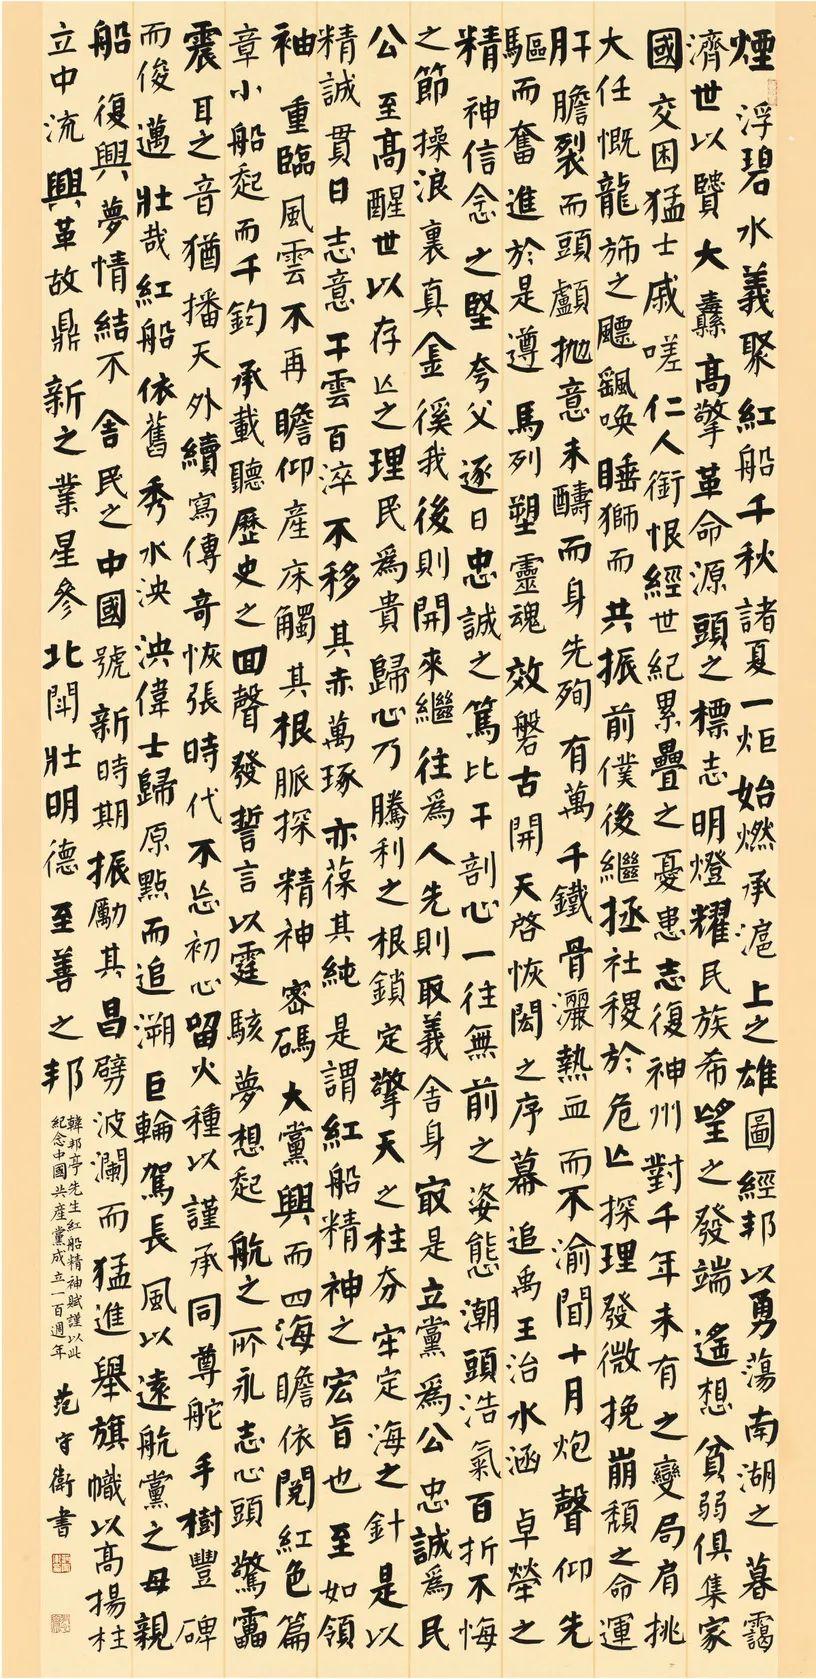 煙浮碧水義聚紅船千秋諸夏一炬始燃承滬上之雄圖經邦以勇蕩南湖之暮靄
濟世以贒大纛高擎革命源頭之標志明燈耀民族希望之發端遙想貧弱俱集家
國交困猛士戚嗟仁人銜恨經世紀累疊之憂患志復神州對千年未有之變局肩挑
大任慨龍旆之飄颻喚睡獅而共振前僕後繼拯社稷於危亾探理發微挽崩頹之命運
肝膽裂而頭顱拋意未酬而身先殉有萬千鐵骨灑熱血而不渝聞十月炮聲仰先
驅而奮進於是遵馬列塑靈魂效磐古開天啓恢閎之序幕追禹王治水涵卓犖之
精神信念之堅夸父逐日忠誠之篤比干剖心一往無前之姿態潮頭浩氣百折不悔
之節操浪裏真金徯我後則開來繼往爲人先則取義舍身寂是立黨爲公忠誠爲民
公至高醒世以存亾之理民爲貴歸心乃騰利之根鎖定擎天之柱夯牢定海之針是以
精誠貫日志意干雲百淬不移其赤萬琢亦葆其純是謂紅船精神之宏旨也至如領
袖重臨風雲不再瞻仰產床觸其根脈探精神密碼大黨興而四海瞻依閱紅色篇
章小船起而千鈞承載聽歷史之回聲發誓言以霆駭夢想起航之所永志心頭驚靁
震耳之音猶播天外續寫傳奇恢張時代不忘初心留火種以謹承同尊舵手樹豐碑
而俊邁壯哉紅船依舊秀水泱泱偉士歸原點而追溯巨輪駕長風以遠航黨之母親
船復興夢情結不舍民之中國號新時期振勵其昌劈波瀾而猛進舉旗幟以高揚柱
立中流興革故鼎新之業星參北閗壯明德至善之邦
韓邦亭先生紅船精神賦謹以此
紀念中國共產黨成立一百週年
范守衛書